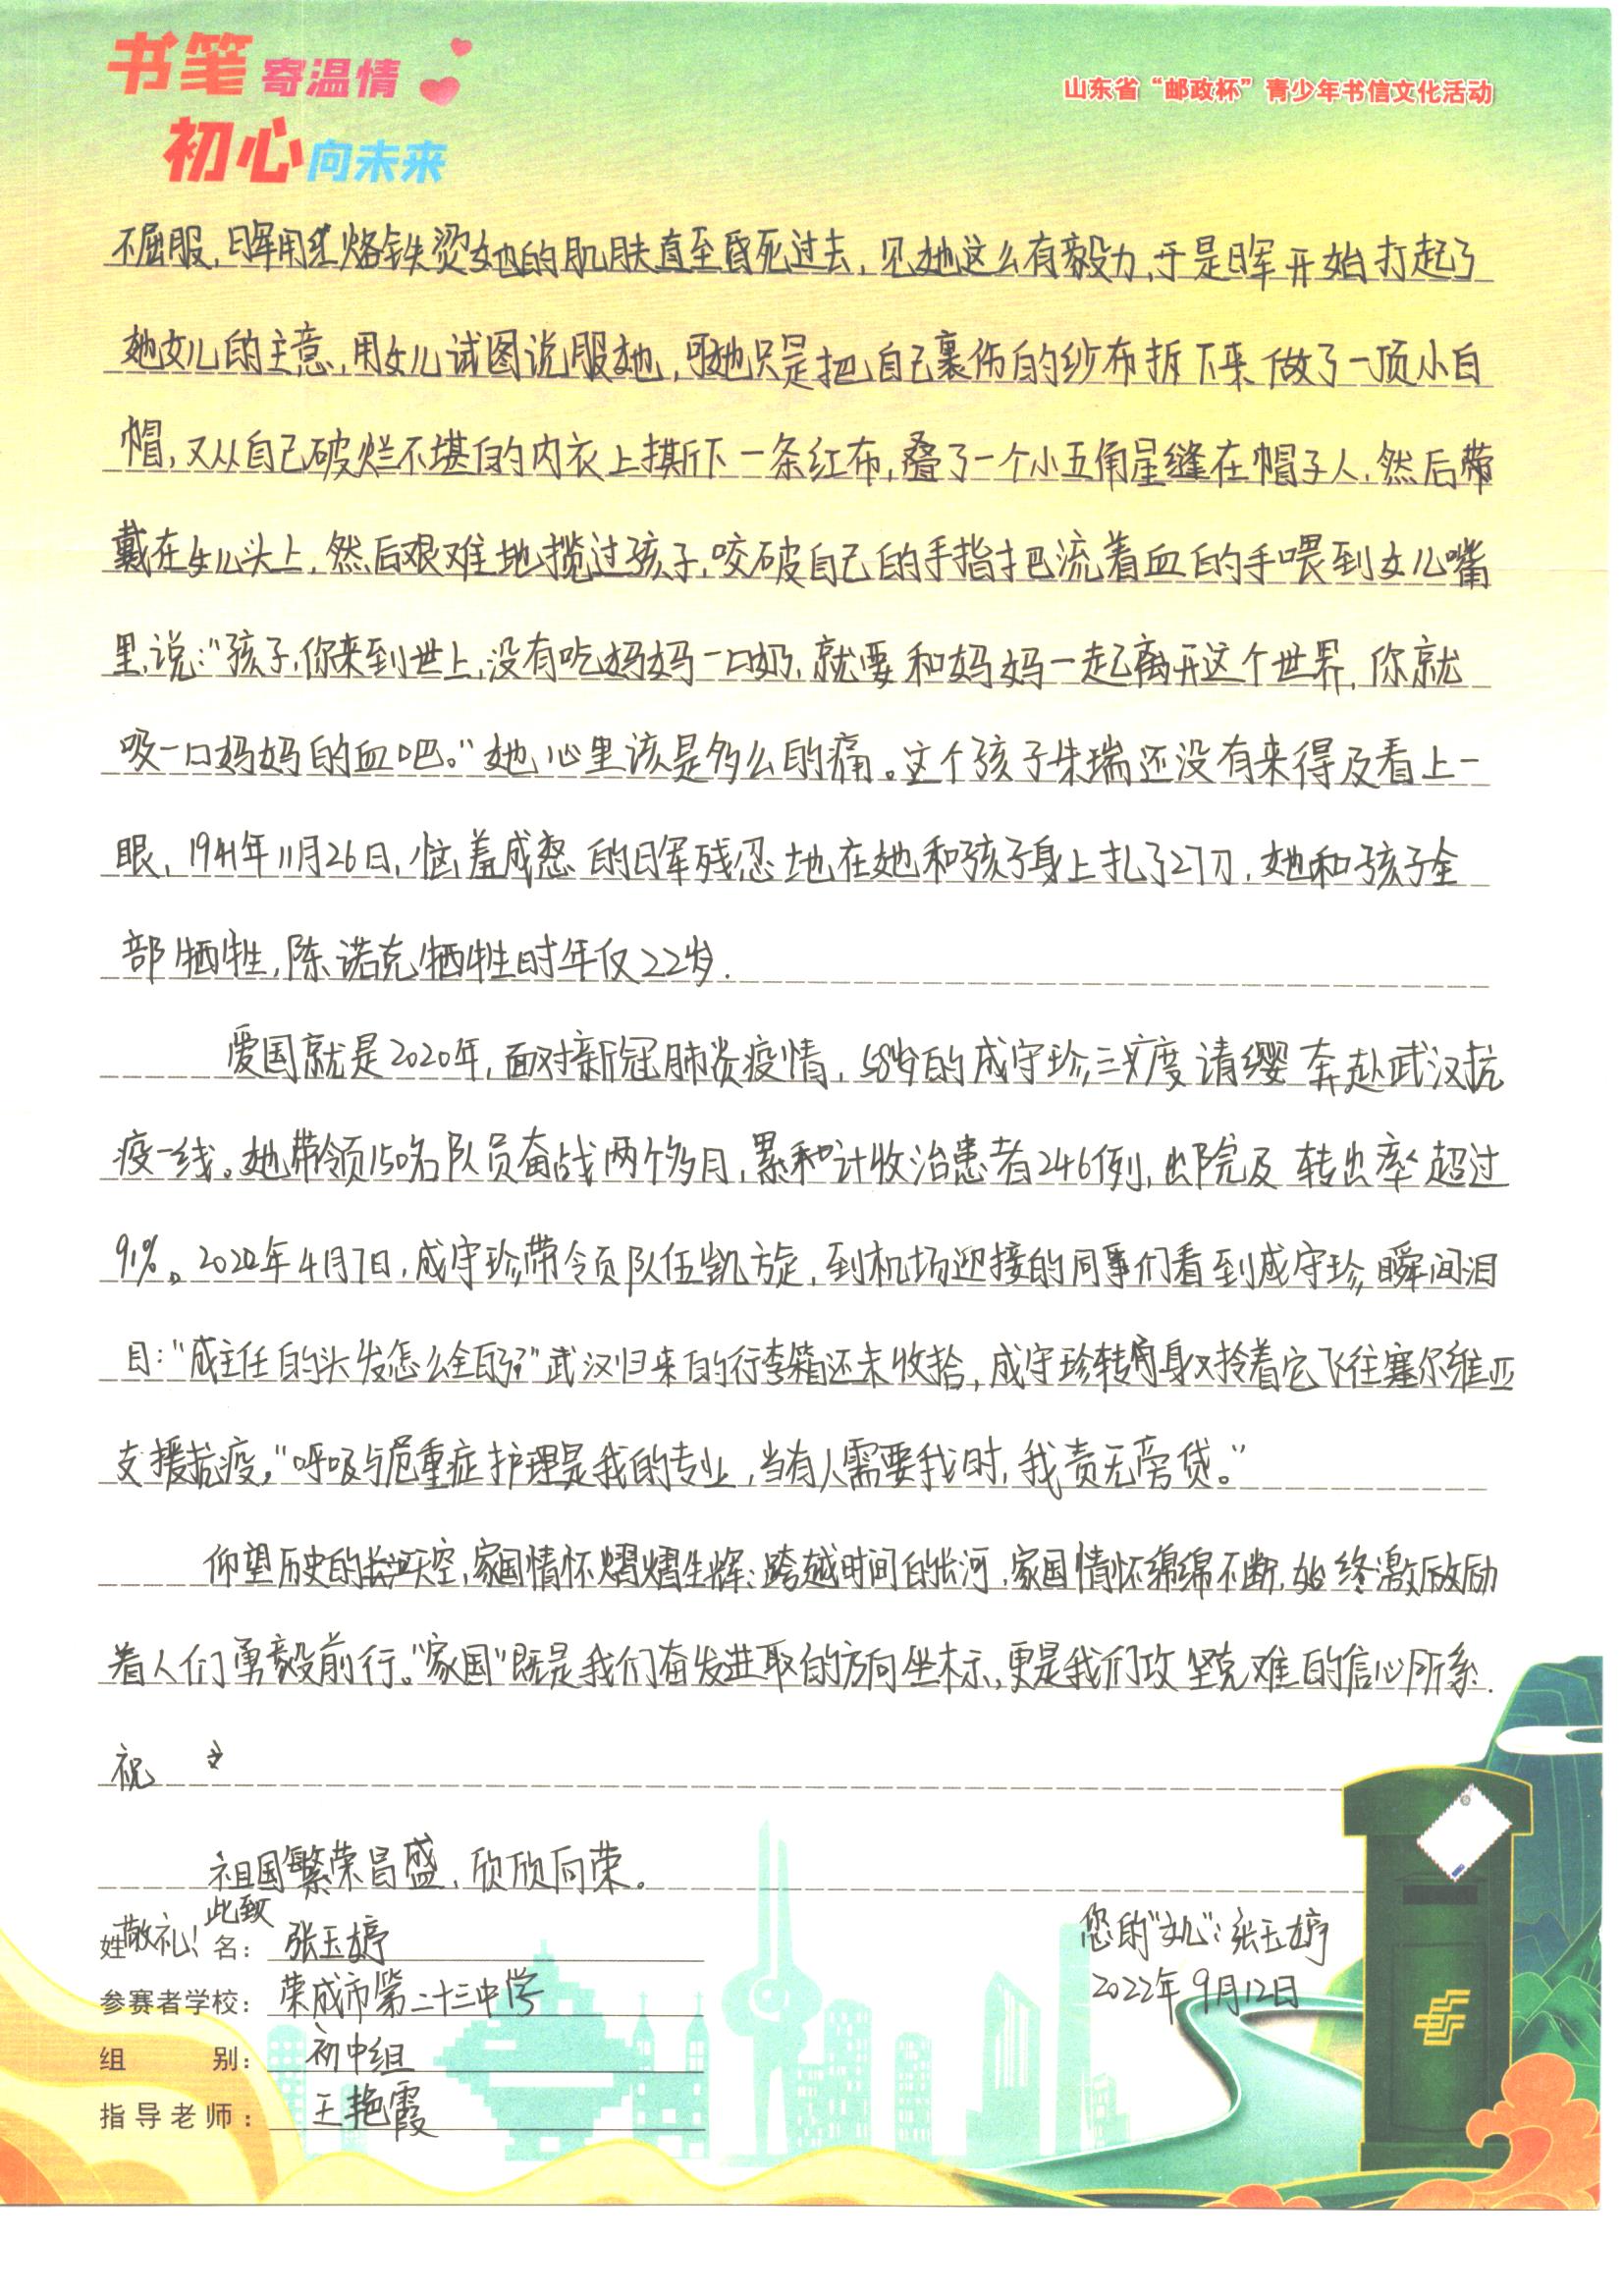 书笔寄温情
初心向未来
山东省“邮政杯”青少年书信文化活动
不屈服，日军用红烙铁烫她的肌肤直至昏死过去，见她这么有毅力，于是日军开始打起了
她女儿的主意，用女儿试图说服她，可她只是把自己裹伤的纱布拆下来做了一顶小白
帽，又从自己破烂不堪的内衣上撕下一条红布，叠了一个小五角星缝在帽子人，然后带
戴在女儿头上，然后艰难地揽过孩子，咬破自己的手指把流着血的手喂到女儿嘴
里，说：“孩子，你来到世上，没有吃妈妈一口奶，就要和妈妈一起离开这个世界，你就
吸一口妈妈的血吧。”她心里该是多么的痛。这个孩子朱瑞还没有来得及看上一
眼，1941年11月26日，恼羞成怒的日军残忍地在她和孩子身上扎了27刀，她和孩子全
部牺牲，陈诺克牺牲时年仅22岁．
爱国就是2020年，面对新冠肺炎疫情，58岁的成守珍三度请缨奔赴武汉抗
疫一线。她带领150名队员奋战两个多月，累计收治患者246例，出院及转出率超过
91%。2020年4月7日，成守珍带领队伍凯旋，到机场迎接的同事们看到成守珍，瞬间泪
目：“成主任的头发怎么全白了？”武汉归来的行李箱还未收拾，成守珍转身又拎着它飞往塞尔维亚
支援抗疫，“呼吸与危重症护理是我的专业，当有人需要我时，我责无旁贷。”
仰望历史的天空，家国情怀熠熠生辉；跨越时间的长河，家国情怀绵绵不断，始终激励
着人们勇毅前行。“家国”既是我们奋发进取的方向坐标，更是我们攻坚克难的信心所系．
祝
祖国繁荣昌盛，欣欣向荣。
此致
敬礼！
姓 名： 张玉婷
您的“女儿”：张玉婷
参赛者学校： 荣成市第二十三中学
2022年9月12日
组 别： 初中组
指导老师： 王艳霞